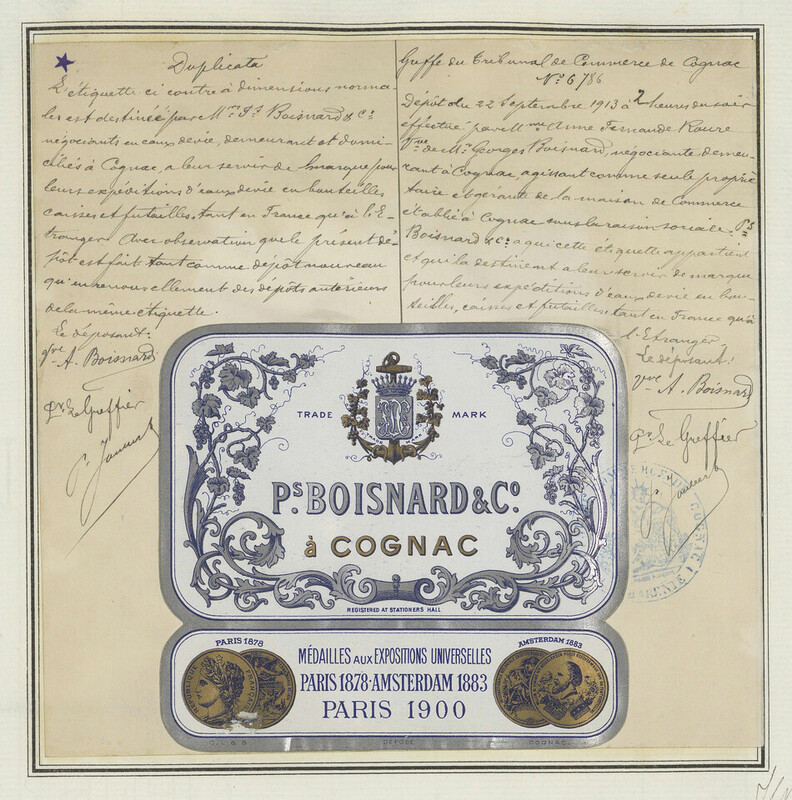 Duplicata
L'étiquette ci contre à dimensions norma-
les est destinée par Mrs Ps Boisnard & Co
négociants en eaux devie, demeurant et domi-
ciliés à Cognac, a leur servir de marque pour
leurs expéditions d'eaux devie en bouteilles
caisses et futailles, tant en France qu'à l'E-
tranger. Avec observation que le présent dé-
pôt est fait tant comme dépôt nouveau
qu'en renouvellement des dépôts antérieurs
de la même étiquette.
Le déposant:
Vve A. Boisnard
Pr Le Greffier
Greffe du Tribunal de Commerce de Cognac
No 6786
Dépôt du 22 Septembre 1913 à 2 heures du soir
effectué par Mme Anne Fernande Roure
Vve de Mr Georges Boisnard, négociante demeu-
rant à Cognac, agissant comme seule proprié
taire et gérante de la maison de Commerce
établie à Cognac sous la raison sociale Ps
Boisnard & Co a qui cette étiquette appartient
et qui la destinent a leur servir de marque
pour leurs expéditions d'eaux devie en bou-
teilles, caisses et futailles tant en France qu'à
l'Etranger
Le déposant:
Vve A. Boisnard
Pr Le Greffier
TRADE MARK
Ps. BOISNARD & Co.
à COGNAC
REGISTERED AT STATIONERS HALL
PARIS 1878
AMSTERDAM 1883
MÉDAILLES AUX EXPOSITIONS UNIVERSELLES
PARIS 1878·AMSTERDAM 1883
PARIS 1900
RÉPUBLIQUE FRANÇAISE
DÉPOSÉ
COGNAC